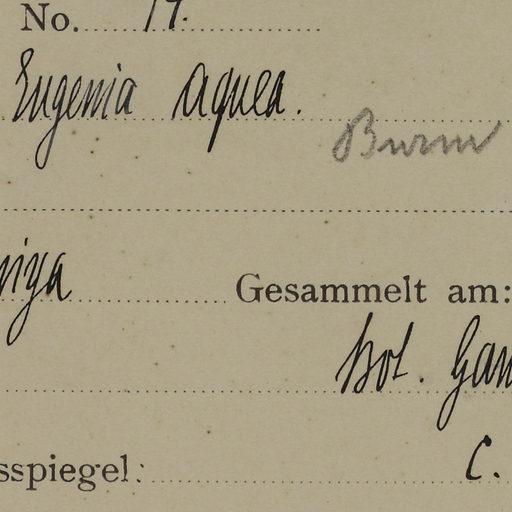 No. 17.
Eugenia aquea.
Burm
niya Gesammelt am:
Bot. Gan
sspiegel: C.